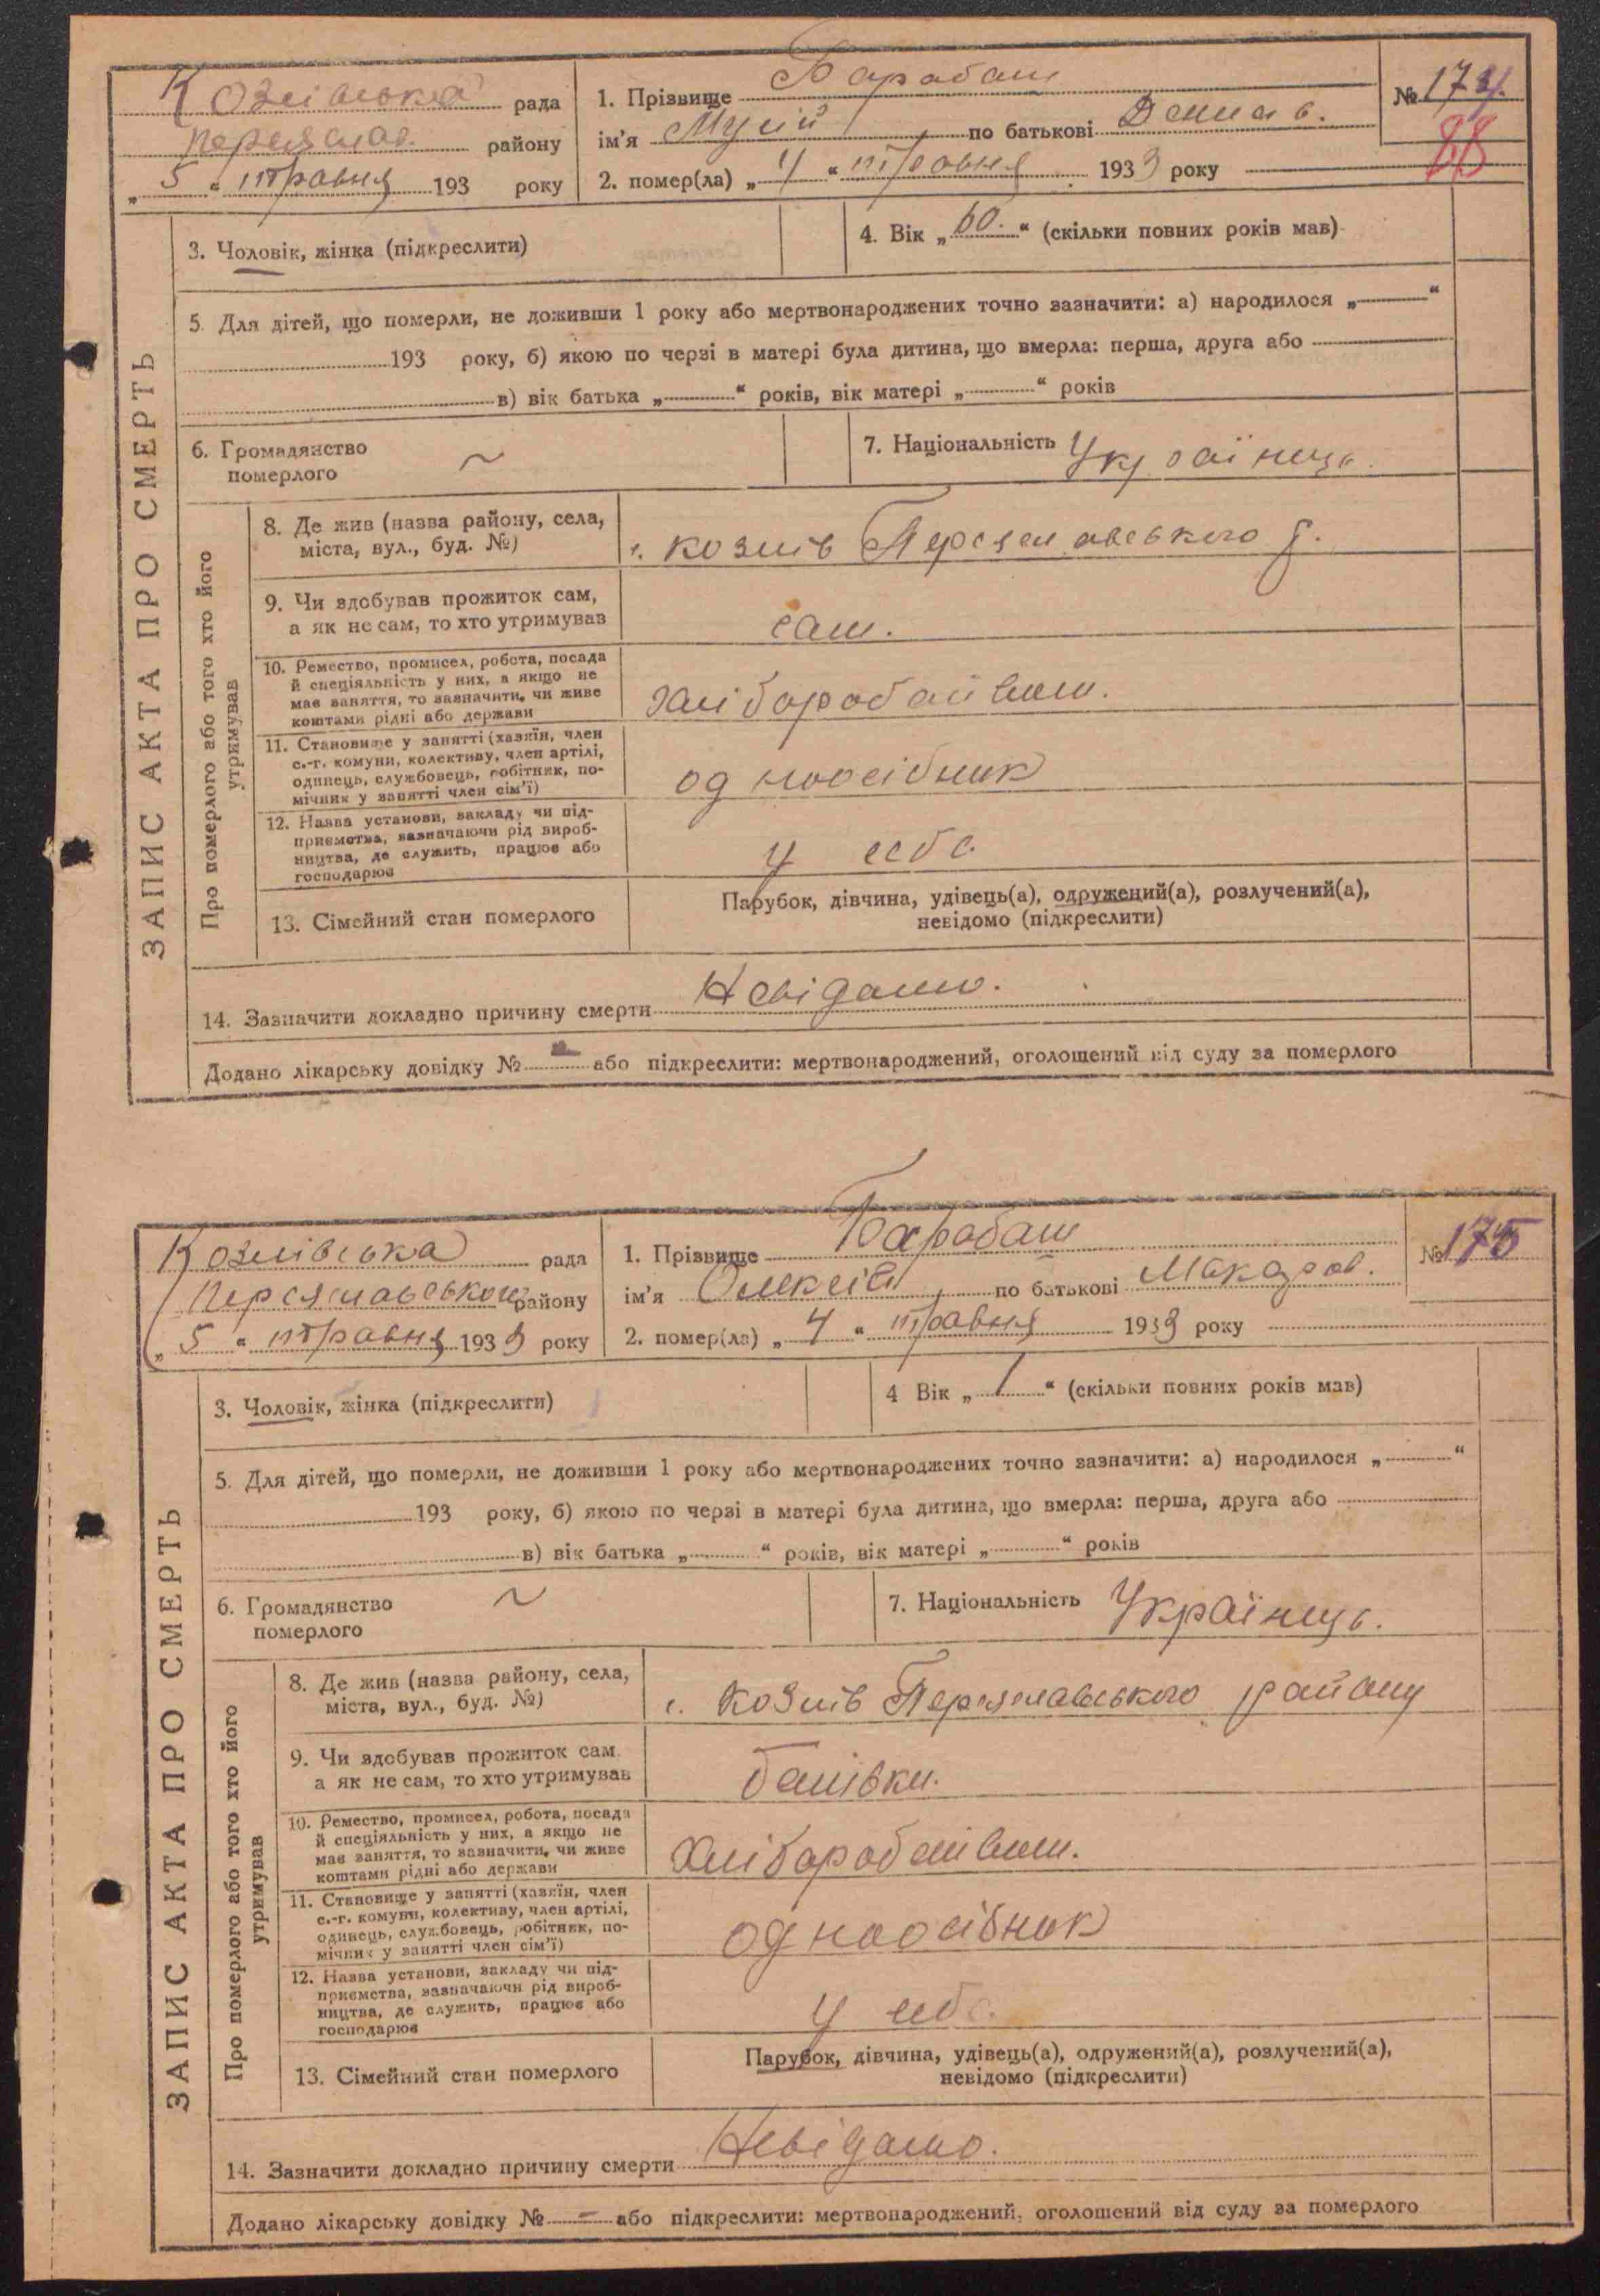 Козлівська рада
Переяслав. району
„5“ травня 193 року
1. Прізвище Барабаш
ім'я Мусій по батькові Денисов.
2. помер(ла) „4“ травня 1933 року
№ 174.
88
ЗАПИС АКТА ПРО СМЕРТЬ
3. Чоловік, жінка (підкреслити)
4. Вік „60.“ (скільки повних років мав)
5. Для дітей, що померли, не доживши 1 року або мертвонароджених точно зазначити: а) народилося „ “
193 року, б) якою по черзі в матері була дитина, що вмерла: перша, друга або
в) вік батька „ “ років, вік матері „ “ років
6. Громадянство
померлого ~
7. Національність Українець.
Про померлого або того хто його
утримував
8. Де жив (назва району, села,
міста, вул., буд. №)
с. Козлів Переяславського р.
9. Чи здобував прожиток сам,
а як не сам, то хто утримував
сам.
10. Ремество, промисел, робота, посада
й спеціяльність у них, а якщо не
має заняття, то зазначити, чи живе
коштами рідні або держави
11. Становище у занятті (хазяїн, член
с.-г. комуни, колективу, член артілі,
одинець, службовець, робітник, по-
мічник у занятті член сім'ї)
одноосібник
12. Назва установи, закладу чи під-
приємства, зазначаючи рід вироб-
ництва, де служить, працює або
господарює
у себе
13. Сімейний стан померлого
Парубок, дівчина, удівець(а), одружений(а), розлучений(а),
невідомо (підкреслити)
14. Зазначити докладно причину смерти Невідомо.
Додано лікарську довідку № — або підкреслити: мертвонароджений, оголошений від суду за померлого
Козлівська рада
Переяславського району
„5“ травня 1933 року
1. Прізвище Барабаш
ім'я Олексій по батькові Макаров.
2. помер(ла) „4“ травня 1933 року
№ 175
ЗАПИС АКТА ПРО СМЕРТЬ
3. Чоловік, жінка (підкреслити)
4 Вік „1“ (скільки повних років мав)
5. Для дітей, що померли, не доживши 1 року або мертвонароджених точно зазначити: а) народилося „ “
193 року, б) якою по черзі в матері була дитина, що вмерла: перша, друга або
в) вік батька „ “ років, вік матері „ “ років
6. Громадянство
померлого ~
7. Національність Українець.
Про померлого або того хто його
утримував
8. Де жив (назва району, села,
міста, вул., буд. №)
с. Козлів Переяславського району
9. Чи здобував прожиток сам,
а як не сам, то хто утримував
10. Ремество, промисел, робота, посада
й спеціяльність у них, а якщо не
має заняття, то зазначити, чи живе
коштами рідні або держави
11. Становище у занятті (хазяїн, член
с.-г. комуни, колективу, член артілі,
одинець, службовець, робітник, по-
мічник у занятті член сім'ї)
одноосібник
12. Назва установи, закладу чи під-
приємства, зазначаючи рід вироб-
ництва, де служить, працює або
господарює
у себе.
13. Сімейний стан померлого
Парубок, дівчина, удівець(а), одружений(а), розлучений(а),
невідомо (підкреслити)
14. Зазначити докладно причину смерти Невідомо.
Додано лікарську довідку № — або підкреслити: мертвонароджений, оголошений від суду за померлого